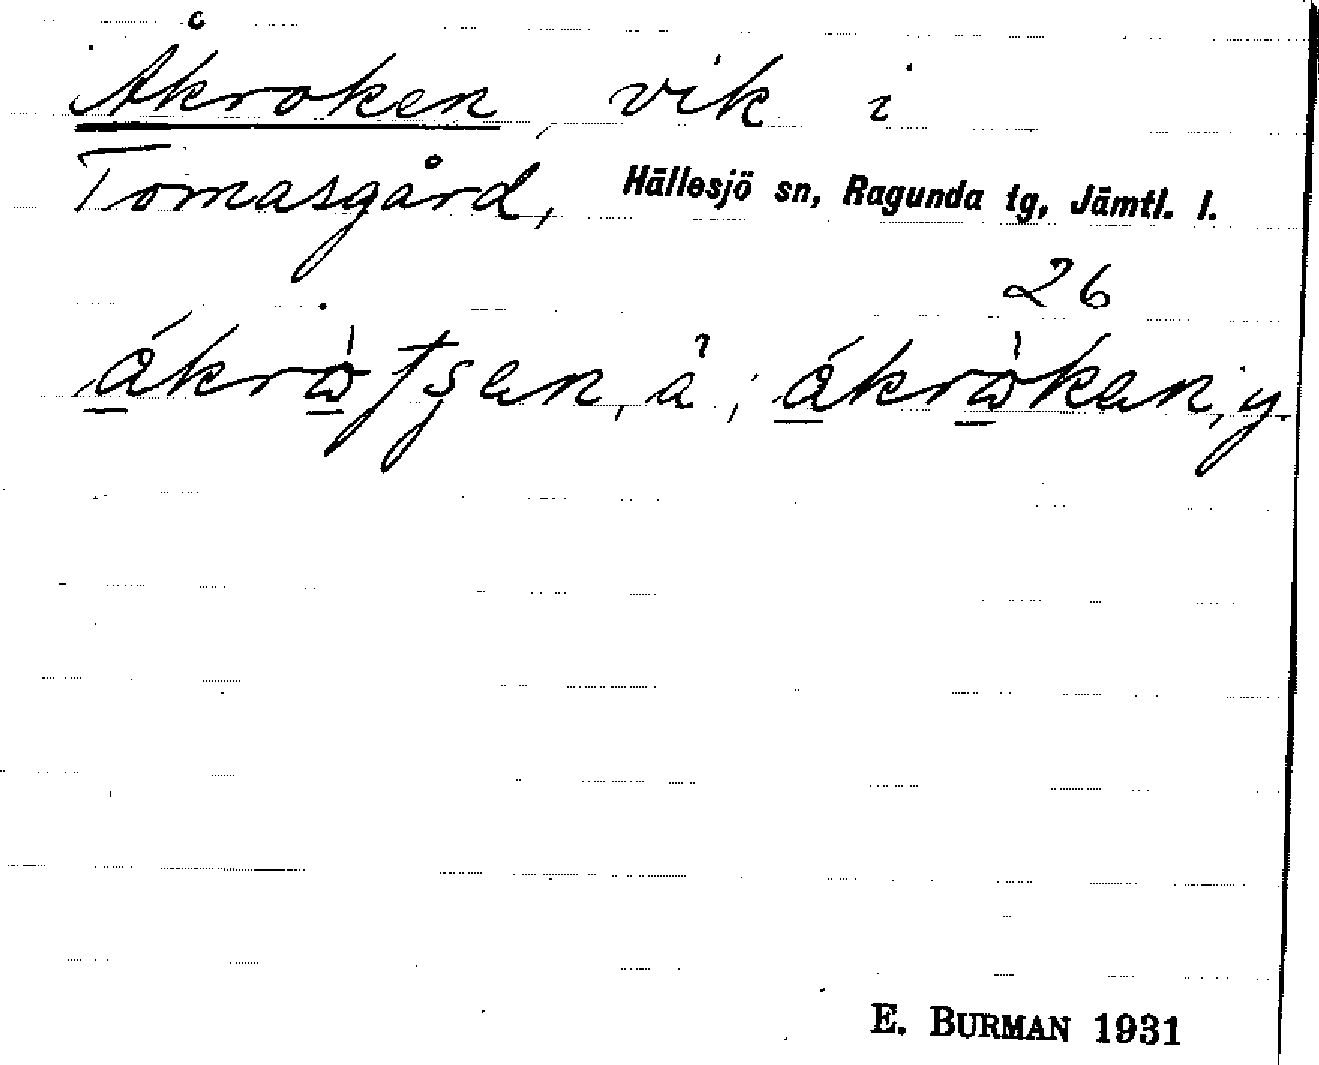 Åkroken, vik i
Tomasgård, Hällesjö sn, Ragunda tg, Jämtl. l.
26
E. BURMAN 1931